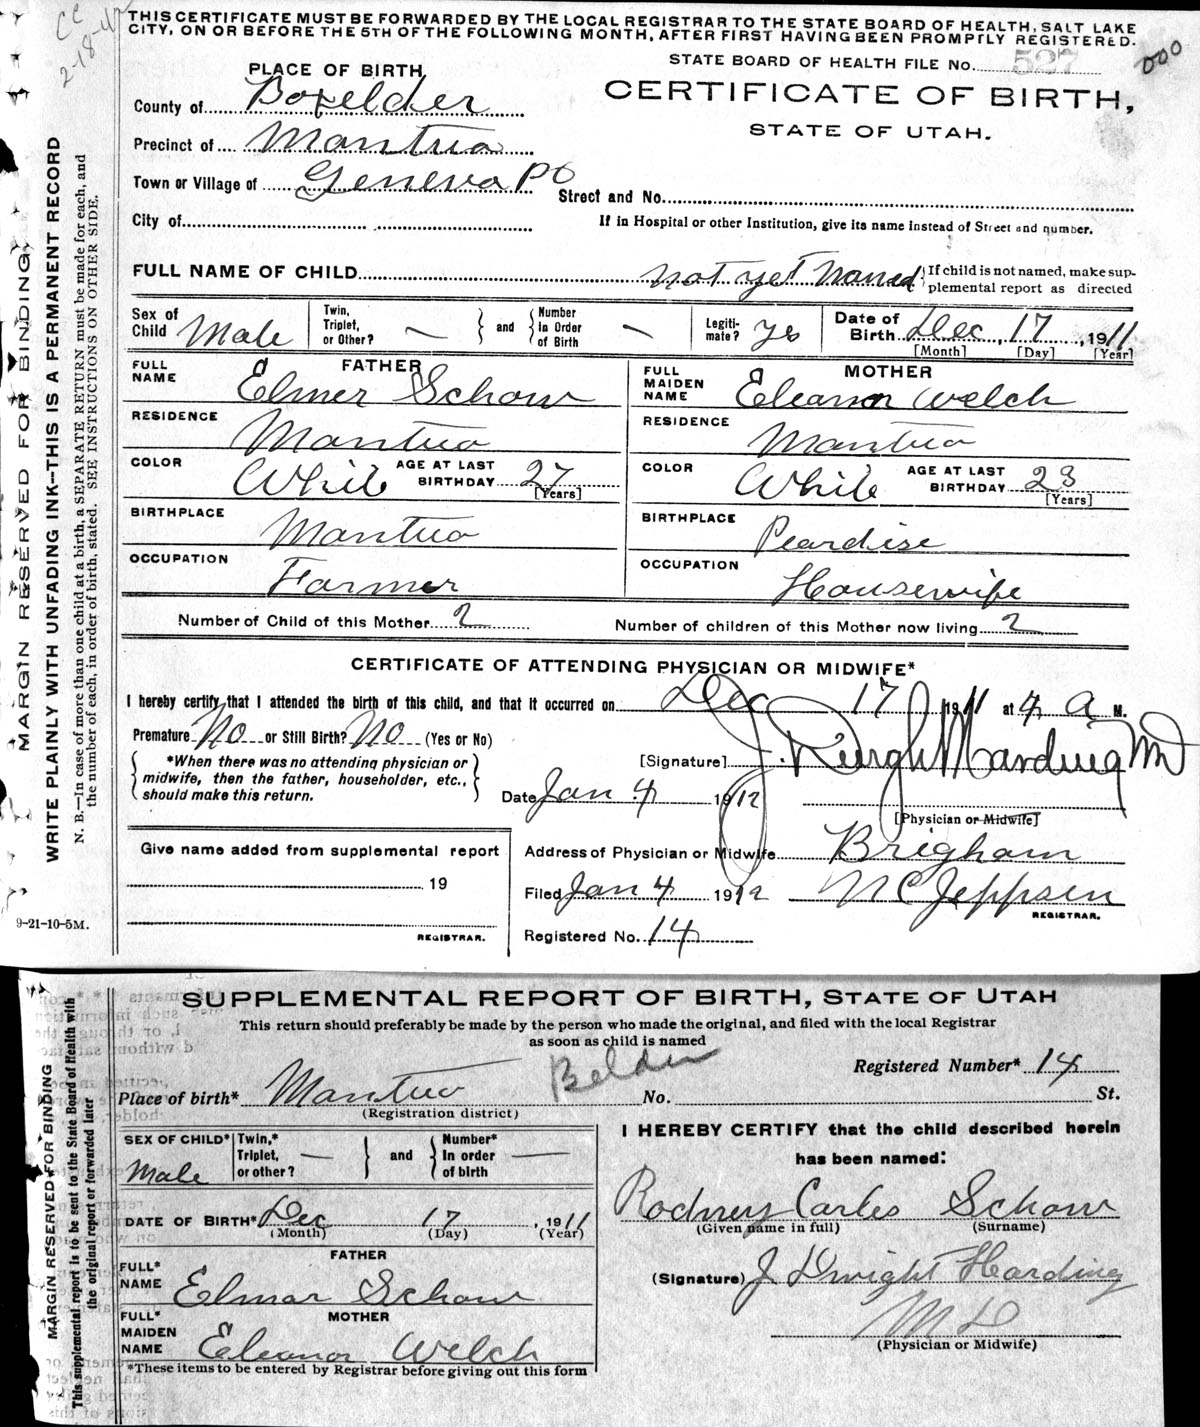 CC
2-18-42
THIS CERTIFICATE MUST BE FORWARDED BY THE LOCAL REGISTRAR TO THE STATE BOARD OF HEALTH, SALT LAKE
CITY, ON OR BEFORE THE 5TH OF THE FOLLOWING MONTH, AFTER FIRST HAVING BEEN PROMPTLY REGISTERED.
STATE BOARD OF HEALTH FILE No. 527
000
CERTIFICATE OF BIRTH,
STATE OF UTAH.
PLACE OF BIRTH
County of Boxelder
Precinct of Mantua
Town or Village of Geneva PO
Street and No.
City of
If in Hospital or other Institution, give its name instead of Street and number.
FULL NAME OF CHILD not yet Named
If child is not named, make sup-
plemental report as directed
Sex of Child Male
Twin, Triplet, or Other? —
and
Number In Order of Birth —
Legiti-mate? yes
Date of Birth Dec, 17, 1911
[Month] [Day] [Year]
FATHER
FULL NAME Elmer Schow
RESIDENCE Mantua
COLOR White AGE AT LAST BIRTHDAY 27
[Years]
BIRTHPLACE Mantua
OCCUPATION Farmer
MOTHER
FULL MAIDEN NAME Eleanor Welch
RESIDENCE Mantua
COLOR White AGE AT LAST BIRTHDAY 23
[Years]
BIRTHPLACE Peardise
OCCUPATION Housewife
Number of Child of this Mother 2
Number of children of this Mother now living 2
CERTIFICATE OF ATTENDING PHYSICIAN OR MIDWIFE*
I hereby certify that I attended the birth of this child, and that it occurred on Dec 17 1911 at 4 a M.
Premature No or Still Birth? No (Yes or No)
*When there was no attending physician or
midwife, then the father, householder, etc.,
should make this return.
[Signature] J. Dwight Harding MD
Date Jan 4 1912
[Physician or Midwife]
Give name added from supplemental report
19
REGISTRAR.
Address of Physician or Midwife Brigham
Filed Jan 4 1912 N C Jeppsen
REGISTRAR.
Registered No. 14
MARGIN RESERVED FOR BINDING
WRITE PLAINLY WITH UNFADING INK—THIS IS A PERMANENT RECORD
N. B.—In case of more than one child at a birth, a SEPARATE RETURN must be made for each, and
the number of each, in order of birth, stated. SEE INSTRUCTIONS ON OTHER SIDE.
9-21-10-5M.
SUPPLEMENTAL REPORT OF BIRTH, STATE OF UTAH
This return should preferably be made by the person who made the original, and filed with the local Registrar
as soon as child is named
Registered Number* 14
Place of birth* Mantua
Belder
No. St.
(Registration district)
SEX OF CHILD* Male
Twin,* Triplet, or other? —
and
Number* In order of birth —
DATE OF BIRTH* Dec 17, 1911
(Month) (Day) (Year)
FATHER
FULL* NAME Elmar Schow
MOTHER
FULL* MAIDEN NAME Eleanor Welch
*These items to be entered by Registrar before giving out this form
I HEREBY CERTIFY that the child described herein
has been named:
Rodney Carlos Schow
(Given name in full) (Surname)
(Signature) J. Dwight Harding
MD
(Physician or Midwife)
MARGIN RESERVED FOR BINDING
This supplemental report is to be sent to the State Board of Health with
the original report or forwarded later